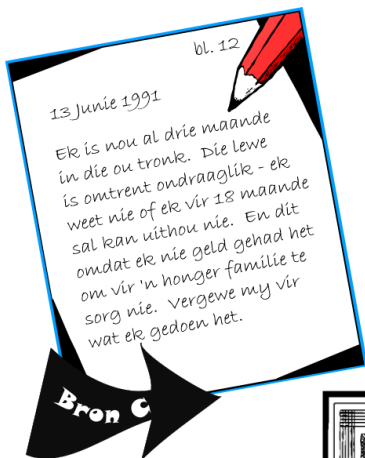 bl. 12
13 Junie 1991
Ek is nou al drie maande
in die ou tronk. Die lewe
is omtrent ondraaglik - ek
weet nie of ek vir 18 maande
sal kan uithou nie. En dit
omdat ek nie geld gehad het
om vir 'n honger familie te
sorg nie. Vergewe my vir
wat ek gedoen het.
Bron C